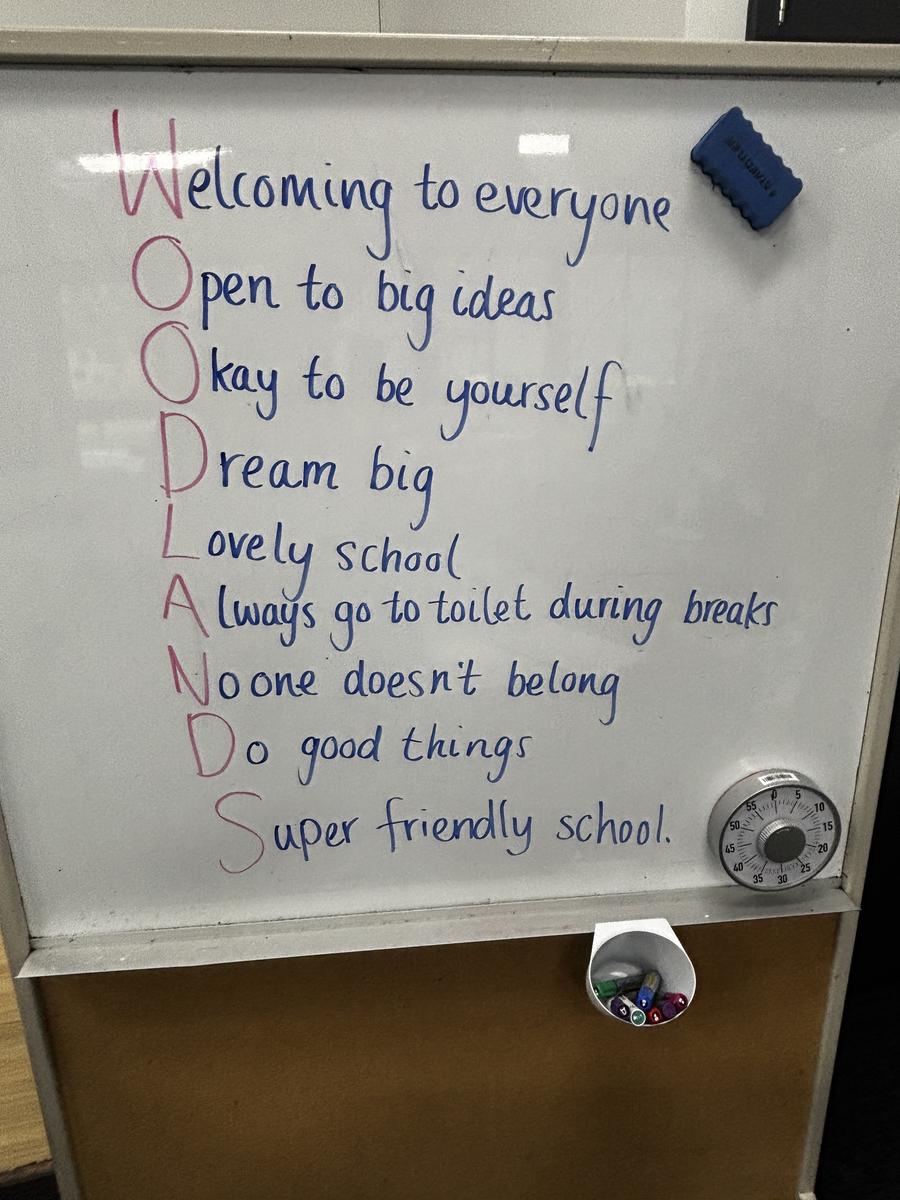 Welcoming to everyone
Open to big ideas
Okay to be yourself
Dream big
Lovely school
Always go to toilet during breaks
No one doesn't belong
Do good things
Super friendly school.
STAEDTLER
0 5 10 15 20 25 30 35 40 45 50 55